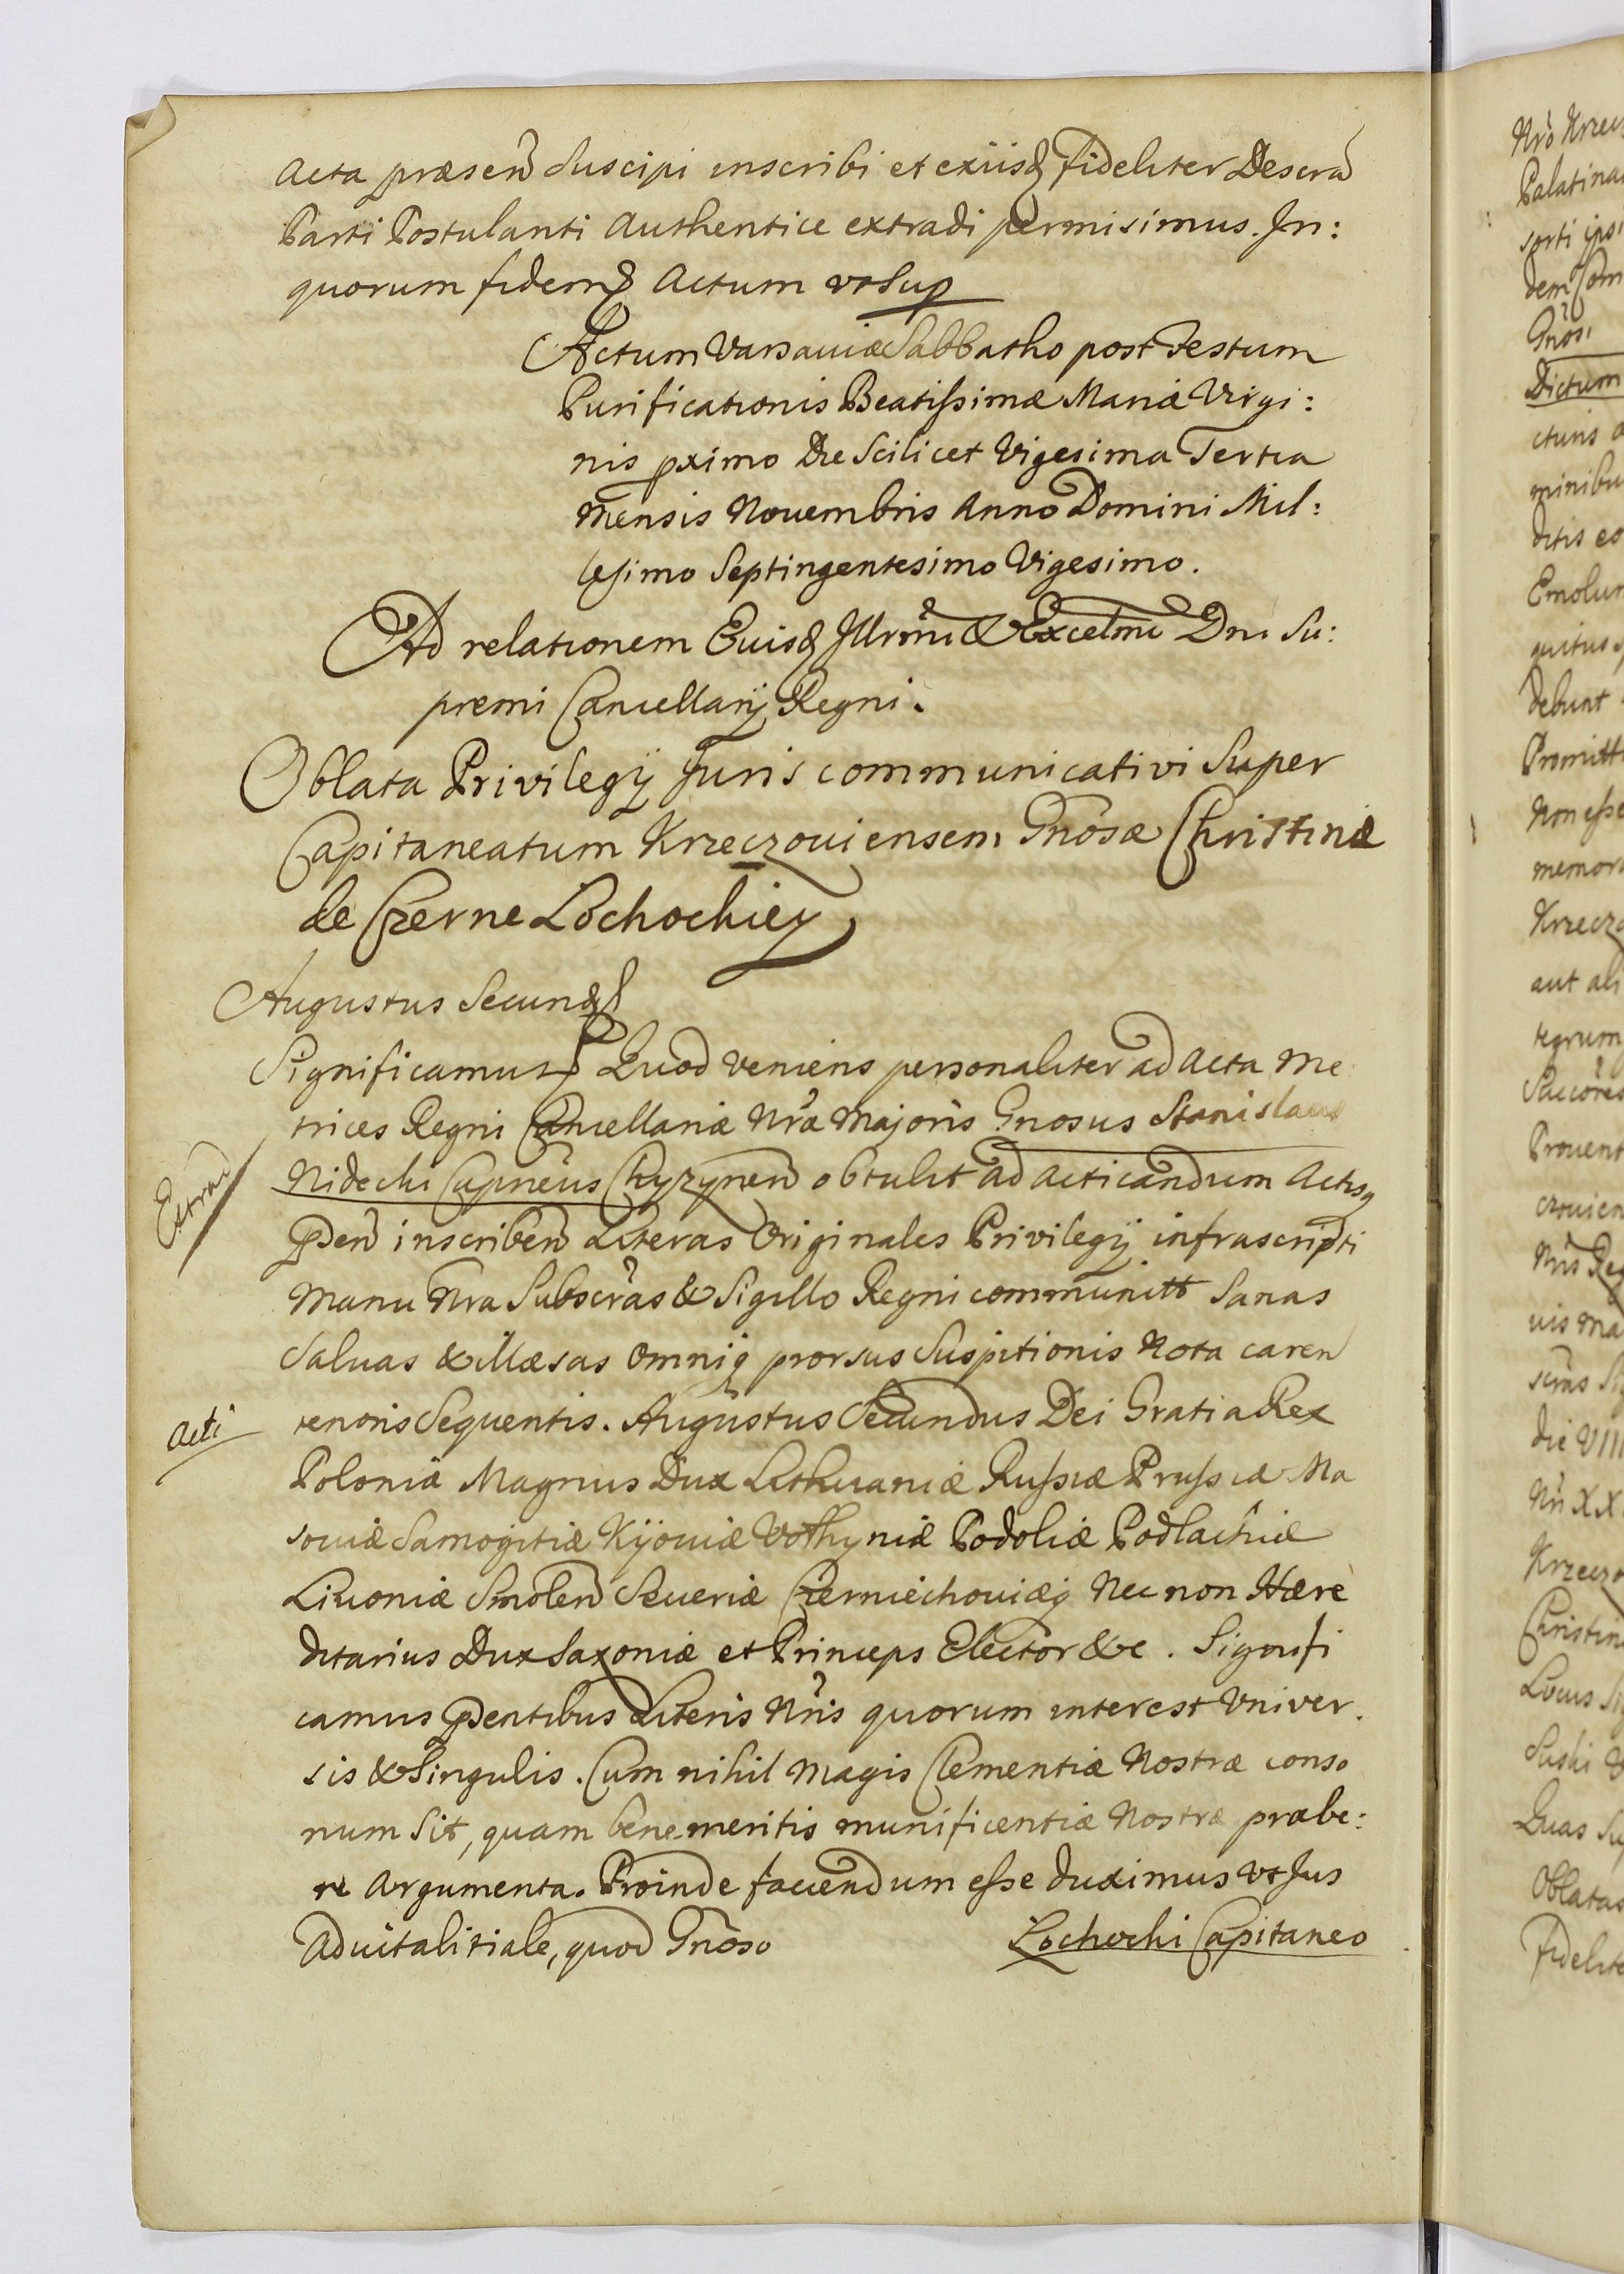 Acta præsen suscipi inscribi et exiisq fideliter Descra
Parti Postulanti Authentice extradi permisimus. In:
quorum fidem Actum vt sup
Actum Varsaviæ Sabbatho post Festum
Purificationis Beatissimæ Mariæ Virgi:
nis pximo Die Scilicet Vigesima Tertia
Mensis Novembris Anno Domini Mil:
lesimo Septingentesimo Vigesimo.
Ad relationem Euisd Illrmi & Excelmi Dni Su:
premi Cancellarij Regni.
Oblata Privilegij Juris communicativi Super
Capitaneatum Krzeczoviensem Gnosæ Christinæ
de Czerne Lochockiey
Augustus Secund
Significamus Quod veniens personaliter ad Acta Me
trices Regni Cancellariæ Nræ Majoris Gnosus Stanislaus
Nidecki Capneus Chyzynen obtulit ad acticandum Actisq
pden inscriben Literas Originales Privilegij infrascripti
Manu Nra Subscras & Sigillo Regni communitt Sanas
Salvas & illæsas omniq prorsus Suspitionis Nota caren
tenoris Sequentis. Augustus Secundus Dei Gratia Rex
Poloniæ Magnus Dux Lithuaniæ Russiæ Prussiæ Ma
soviæ Samogitiæ Kijoviæ Volhyniæ Podoliæ Podlachiæ
Livoniæ Smolen Severiæ Czerniechoviæq Nec non Hære
ditarius Dux Saxoniæ et Princeps Elector &c. Signifi
camus pdentibus Literis Nris quorum interest Vniver.
sis & Singulis. Cum nihil magis Clementiæ Nostræ conso
num Sit, quam bene meritis munificentiæ Nostræ præbe:
re Argumenta. Proinde faciendum esse duximus vt Jus
Advitalitiale, quod Gnoso Lochocki Capitaneo
Extrad
acti
Nro Krzecz
Palatina
sorti ipsi
dem Com
Gnosi
Dictum
cturis
minibu
ditis eo
Emolum
debunt
Promitt
Non esse
memora
Krzeczo
aut ali
tegrum
Succores
Provent
czovien
Nris Reg
vis ma
scras
die VIII
Nri XX
Krzeczo
Christin
Locus
Quas Su
Oblatas
fidelite